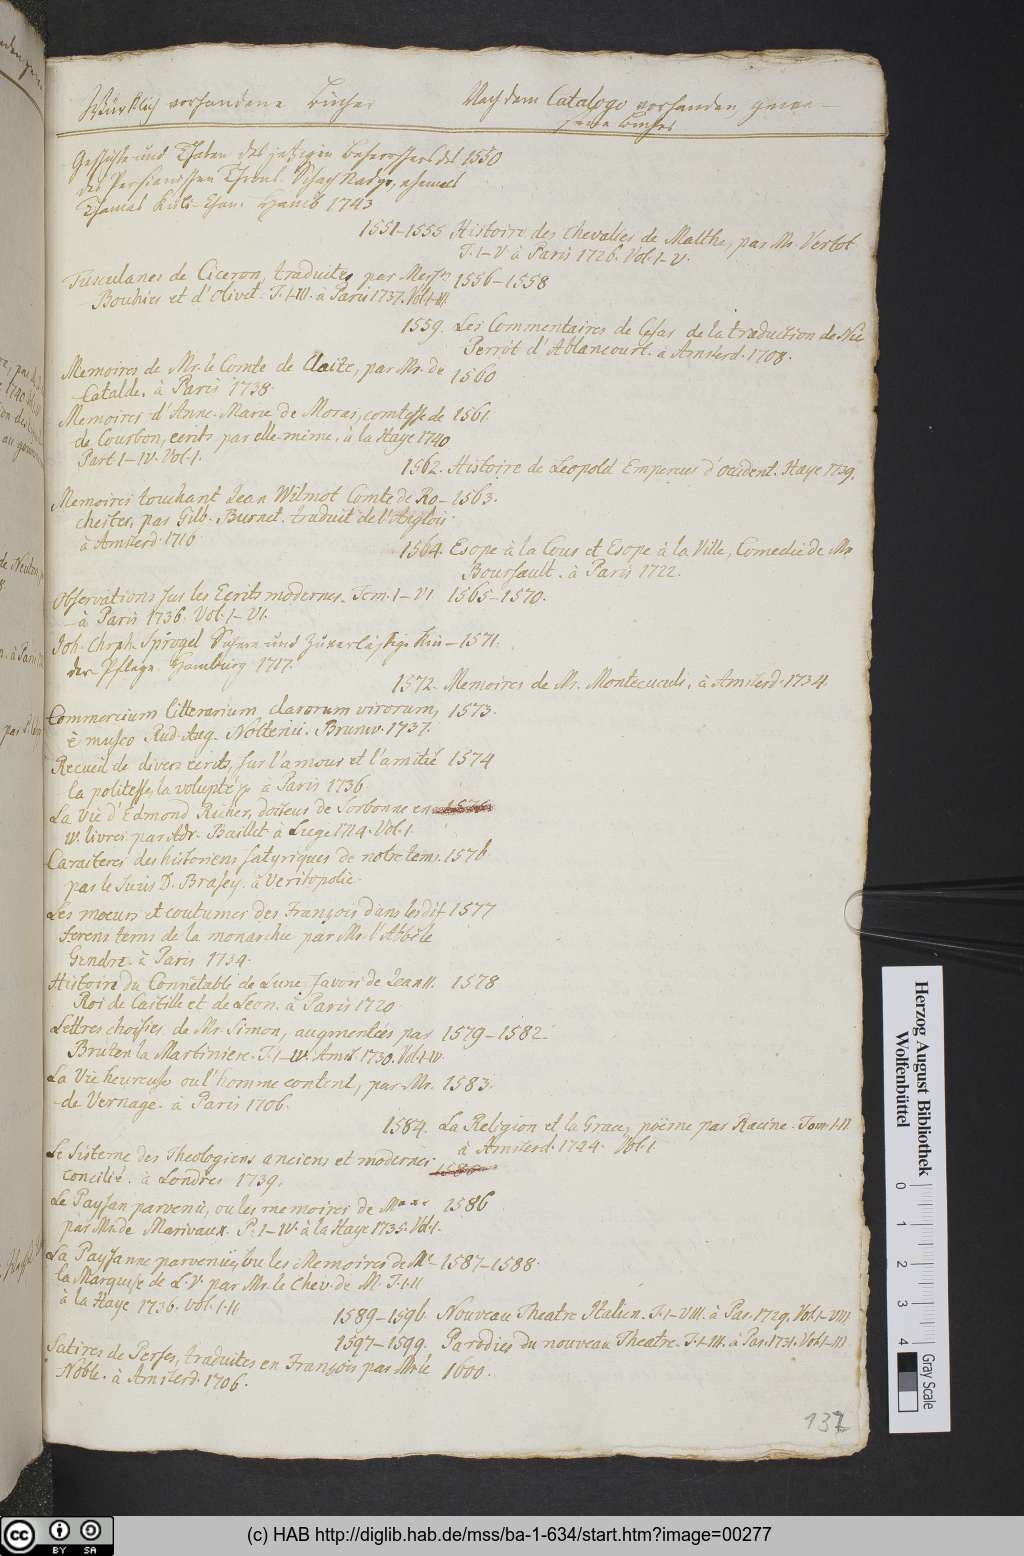 Würcklich vorhandene Bücher
Nach dem Catalogo vorhanden gewe-
sene Bücher
Geschichte und Thaten des jetzigen Beherrschers des 1550
des Persianischen Throns. Schach Nadyr, ehemals
Thamas Kuli-Chan. Hamb 1743
1551-1555 Histoire des chevalies de Malthe, par Mr. Vertot
T. I-V à Paris 1726. Vol. I-V.
Tusculanes de Ciceron, traduites par Messrs 1556-1558
Bouhies et d'Olivet. T. I-III. à Paris 1737. Vol I-III
1559. Les Commentaires de Cesar de la traduction de Nic
Perrot d'Ablancourt. à Amsterd. 1708.
Memoires de Mr. le Comte de Claize, par Mr. de 1560
Catalde. à Paris 1738
Memoires d'Anne-Marie de Moras, comtesse de 1561
de Courbon, ecrits par elle-mème, à la Haye 1740
Part I-IV. Vol. I.
1562. Histoire de Leopold Empereur d'occident. Haye 1739.
Memoires touchant Jean Wilmot Comte de Ro- 1563.
chester, par Gilb. Burnet. traduit de l'Anglois
à Amsterd. 1716
1564. Esope à la Cour et Esope à la Ville, Comedie de Mr
Boursault. à Paris 1722.
Observations sur les Ecrits modernes. Tom. I-VI 1565-1570.
à Paris 1736. Vol. I-VI.
Joh. Chrph. Sprögel und 1571.
der Pflege Hamburg 1717.
1572. Memoires de Mr. Montecuculi. à Amsterd. 1734
Commercium litterarium clarorum virorum, 1573.
è museo Rud. Aug. Noltenii. Brunsv. 1737.
Recueil de divers ecrits, sur l'amour et l'amitié 1574
la politesse, la volupté à Paris 1736
La Vie d'Edmond Richer, docteur de Sorbonne en 1575
IV. livres. par Adr. Baillet à Liege 1714. Vol. I
Caracteres des historiens satyriques de notre tems. 1576
par le Suris D. Brasey. à Veritopolie.
Les moeurs et coutumes des François dans les dif 1577
ferens tems de la monarchie par Mr. l'Abbé le
Gendre. à Paris 1734.
Histoire du Connétable de Lune favori de Jean II. 1578
Roi de Castille et de Leon. à Paris 1720
Lettres choisies de Mr. Simon, augmentées par 1579-1582.
Bruzen la Martiniere. T. I-IV. Amst. 1730. Vol. I-IV.
La Vie heureuse ou l'homme content, par Mr. 1583.
de Vernage. à Paris 1706.
1584. La Religion et la Grace, poëme par Racine. Tom. I-II
à Amsterd. 1744. Vol. I.
Le Sisteme des Theologiens anciens et modernes 1585
concilié. à Londres 1739.
Le Paysan parvenu, ou les memoires de M*** 1586
par Mr. de Marivaux. P. I-IV. à la Haye 1735. Vol. I.
La Paysanne parvenüe, ou les Memoires de Me 1587-1588.
la Marquise de L. V. par Mr. le Chev. de M. T. I-II
à la Haye 1736. Vol. I-II
1589-1596 Nouveau Theatre Italien. T. I-VIII. à Par. 1729. Vol. I-VIII
1597-1599. Parodies du nouveau Theatre. T. I-III. à Par. 1731. Vol. I-III
Satires de Perse, traduites en François par Mr le 1600.
Noble. à Amsterd. 1706.
137
Herzog August Bibliothek
Wolfenbüttel
0 1 2 3 4
Gray Scale
cc BY SA
(c) HAB http://diglib.hab.de/mss/ba-1-634/start.htm?image=00277